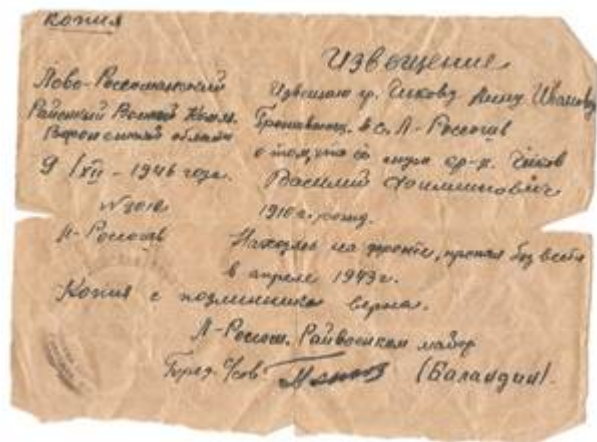 Копия
Извещение
Лово-Россошанский
Районный Военный Комис.
Воронежской области
9/XII - 1946 года.
№ 2010
Л-Россошь
Извещаю гр. Чикову Анну Ивановну
Проживающ. в с. Л-Россошь
о том, что её муж кр-ц. Чиков
Василий
1910 г. рожд.
Находясь на фронте, пропал без вести
в апреле 1943 г.
Копия с подлинника верна.
Л-Россош. Райвоенком майор
Пред. (Баландин).